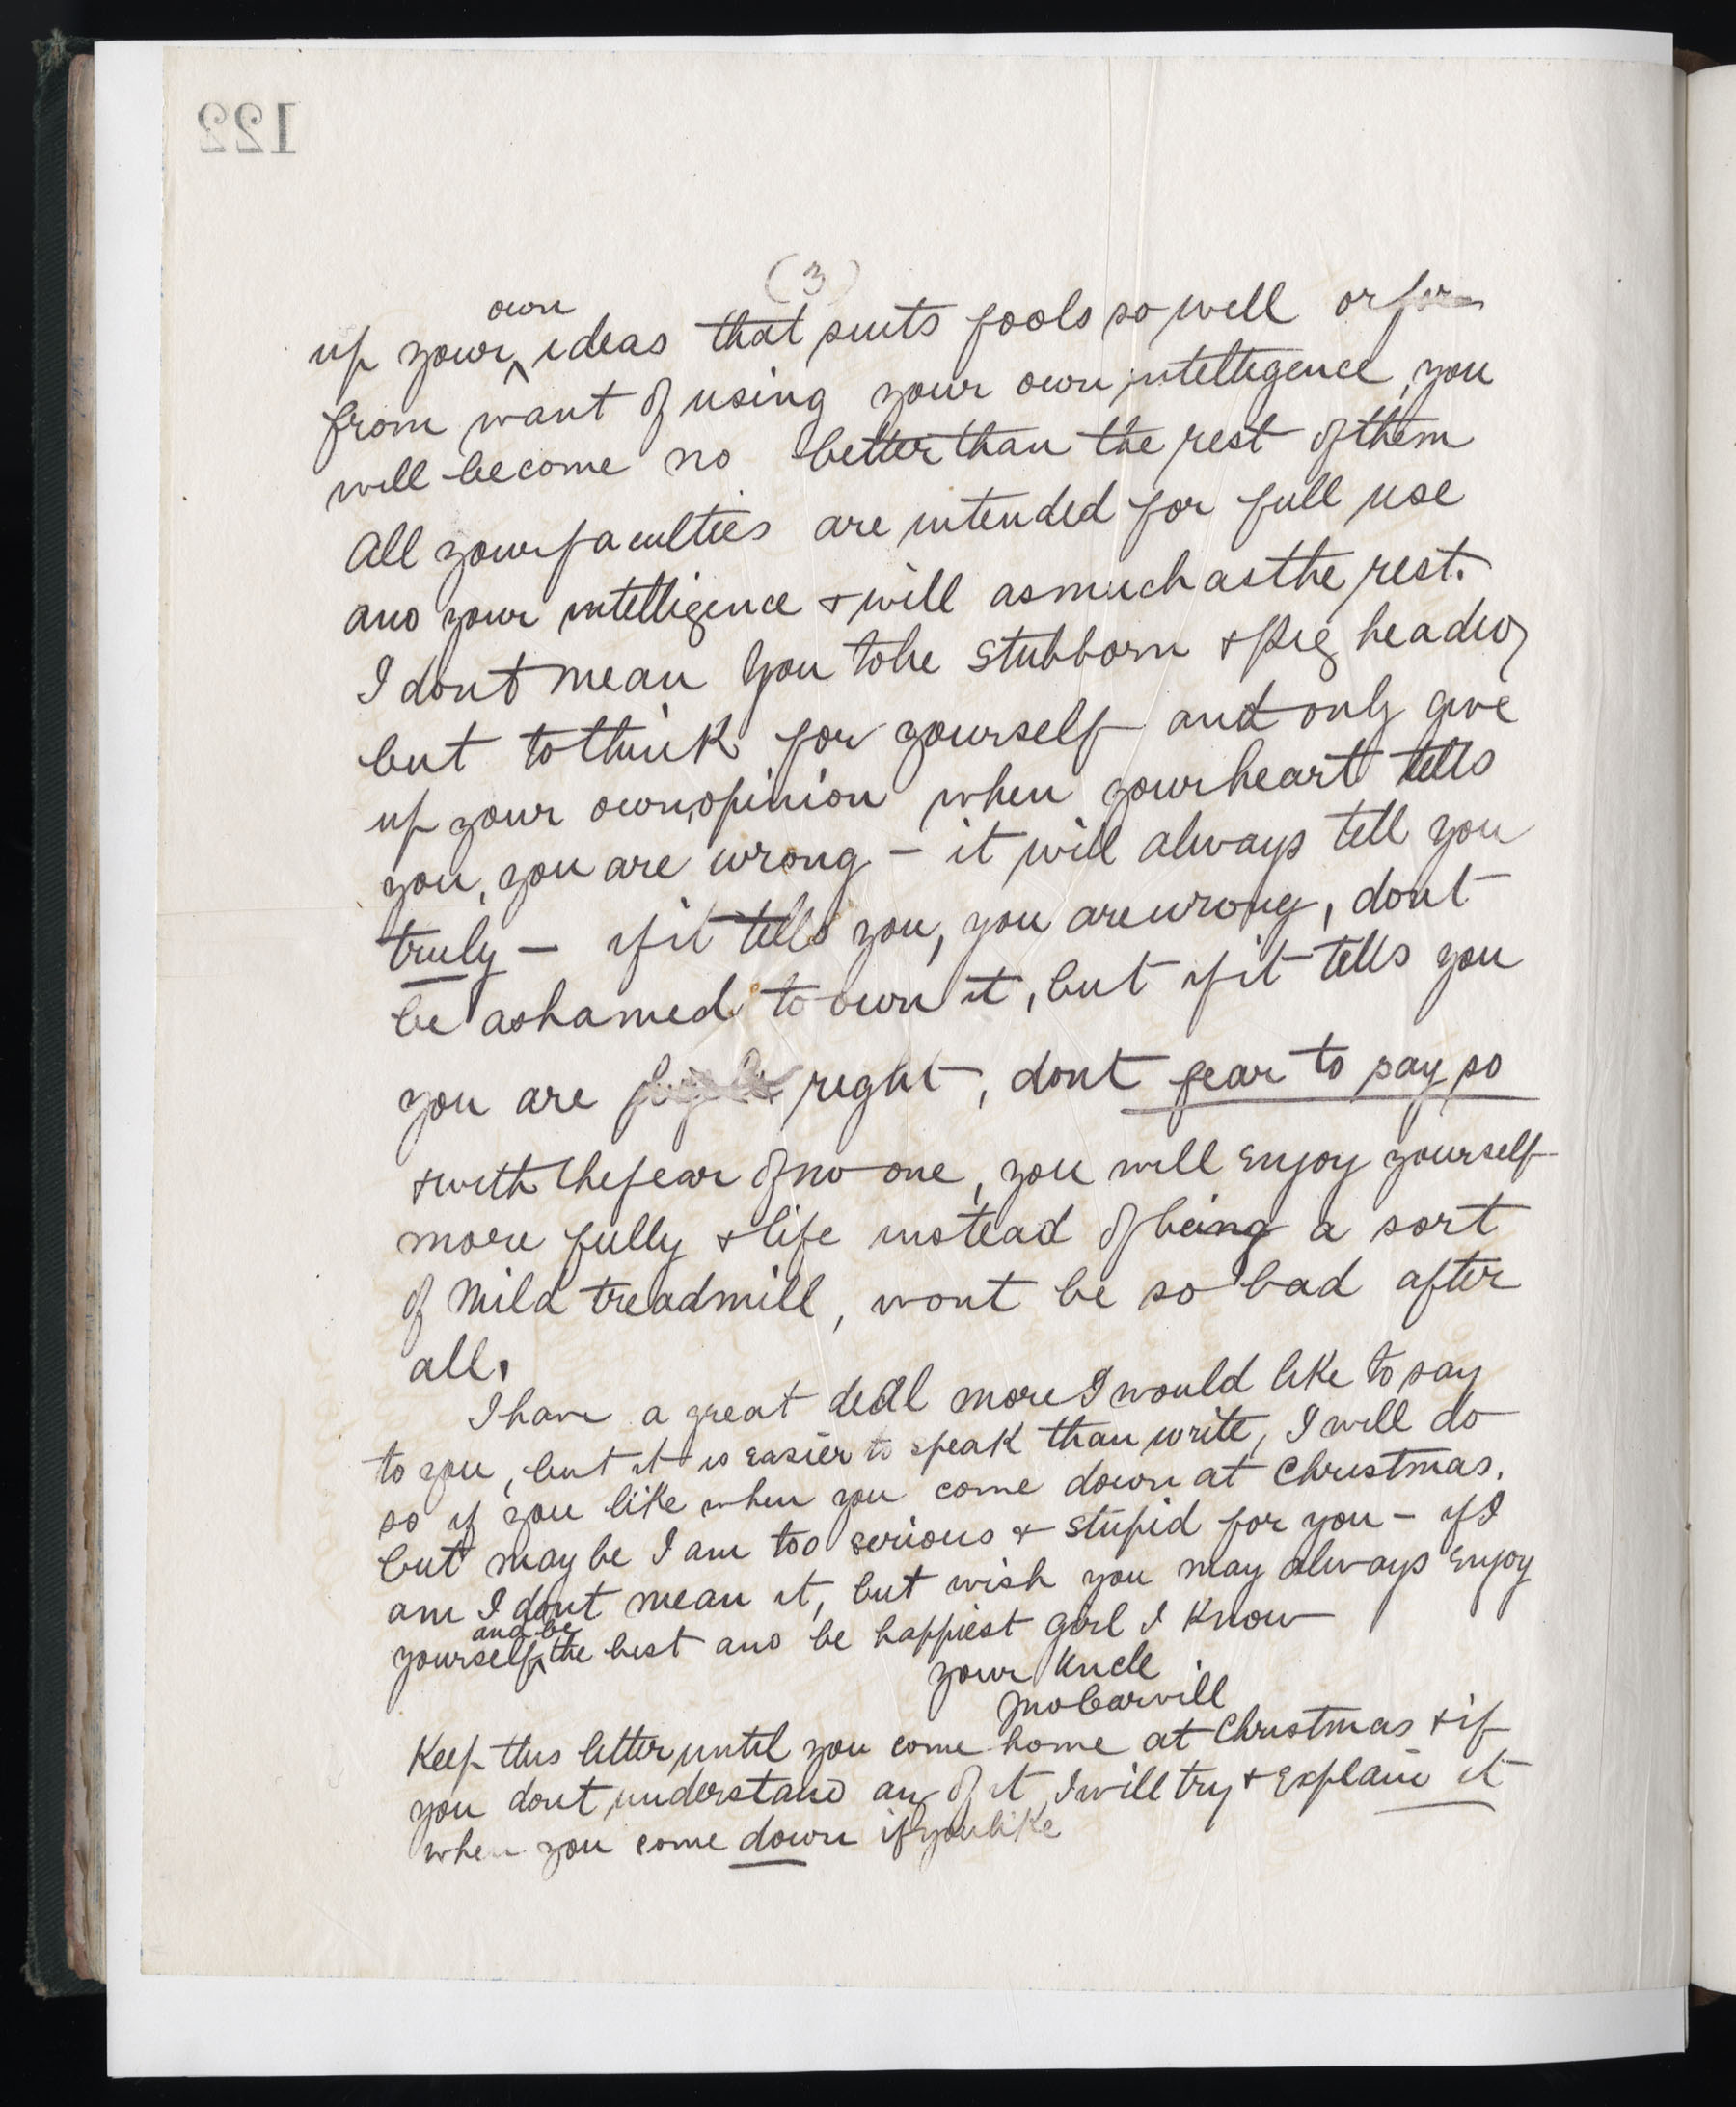 122
(3)
up your own ideas that suits fools so well or for
from want of using your own intelligence, you
will become no better than the rest of them
All your faculties are intended for full use
and your intelligence & will as much as the rest.
I dont mean you to be stubborn & pig headed,
but to think for yourself and only give
up your own opinion when your heart tells
you, you are wrong – it will always tell you
truly – if it tells you, you are wrong, dont
be ashamed to own it, but if it tells you
you are right, dont fear to say so
& with the fear of no one, you will enjoy yourself
more fully & life instead of being a sort
of mild treadmill, wont be so bad after
all.
I have a great deal more I would like to say
to you, but it is easier to speak than write, I will do
so if you like when you come down at Christmas.
but may be I am too serious & stupid for you – if I
am I dont mean it, but wish you may always enjoy
yourself and be the best and be happiest girl I know
your Uncle
Keep this letter until you come home at Christmas & if
you dont understand any of it I will try & explain it
when you come down if you like